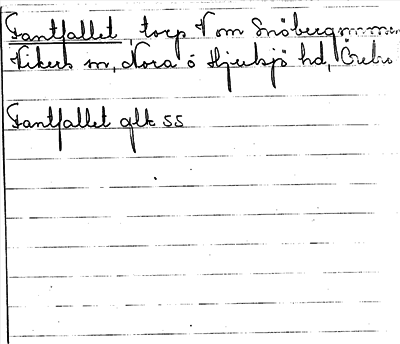 Fantfallet, torp V om Snöbergsmmen
Vikers sn, Nora o Hjulsjö hd, Örebro
Fantfallet glk 55